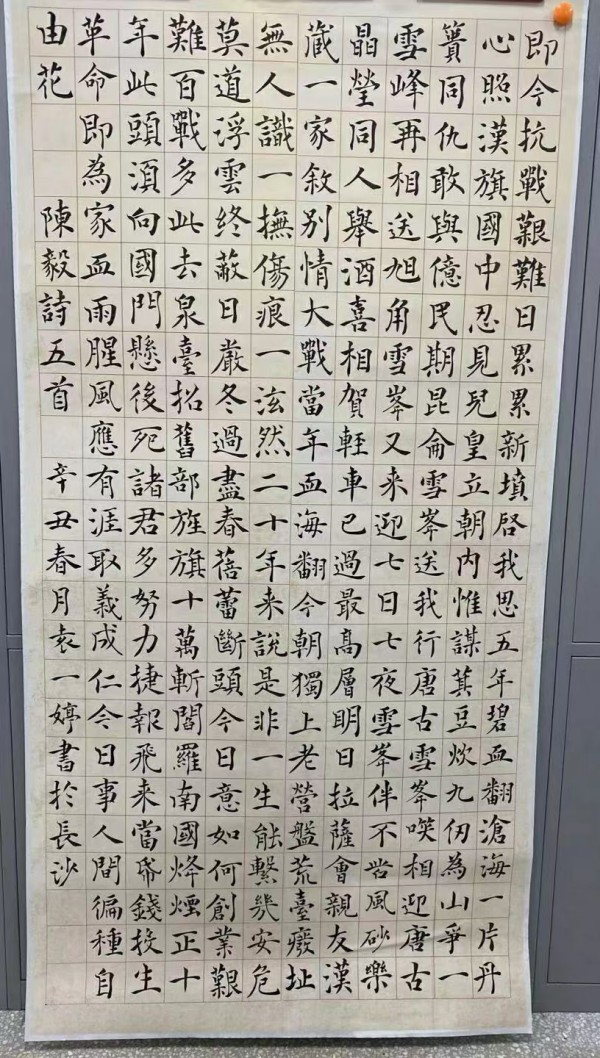 即今抗戰艱難日累累新墳啓我思五年碧血翻滄海一片丹
心照漢旗國中忍見兒皇立朝内惟謀萁豆炊九仞為山爭一
簣同仇敢與億民期昆侖雪峯送我行唐古雪峯咲相迎唐古
雪峰再相送旭角雪峯又来迎七日七夜雪峯伴不苦風砂樂
晶瑩同人舉酒喜相賀輕車已過最高層明日拉薩會親友漢
藏一家敘別情大戰當年血海翻今朝獨上老營盤荒臺廢址
無人識一撫傷痕一泫然二十年来說是非一生能繫幾安危
莫道浮雲終蔽日嚴冬過盡春蓓蕾斷頭今日意如何創業艱
難百戰多此去泉臺招舊部旌旗十萬斬閻羅南國烽煙正十
年此頭湏向國門懸後死諸君多努力捷報飛来當帋錢投生
革命即為家血雨腥風應有涯取義成仁今日事人間徧種自
由花 陳毅詩五首 辛丑春月袁一婷書於長沙